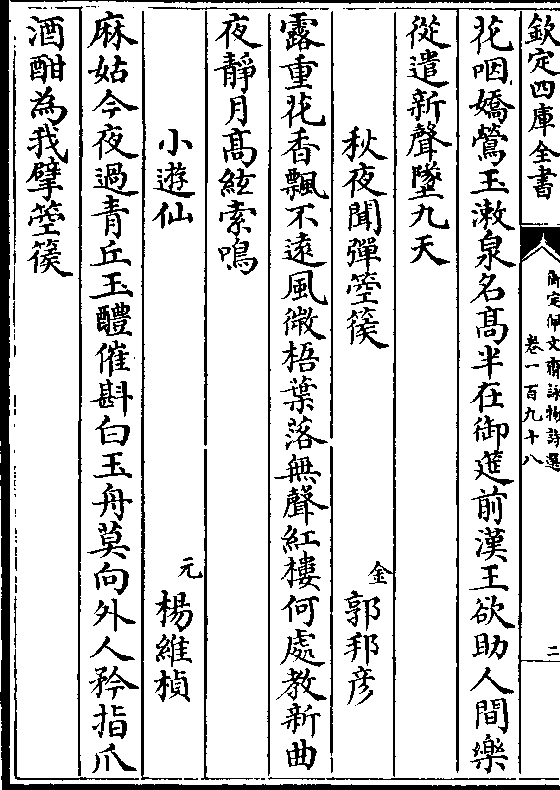 欽定四庫全書
御定佩文齋詠物詩選
卷一百九十八
二
花咽嬌鶯玉漱泉名髙半在御筵前漢王欲助人間樂
從遣新聲墜九天
秋夜聞彈箜篌
金
郭邦彦
露重花香飄不逺風微梧葉落無聲紅樓何處教新曲
夜靜月髙絃索鳴
小遊仙
元
楊維楨
麻姑今夜過青丘玉醴催斟白玉舟莫向外人矜指爪
酒酣為我擘箜篌